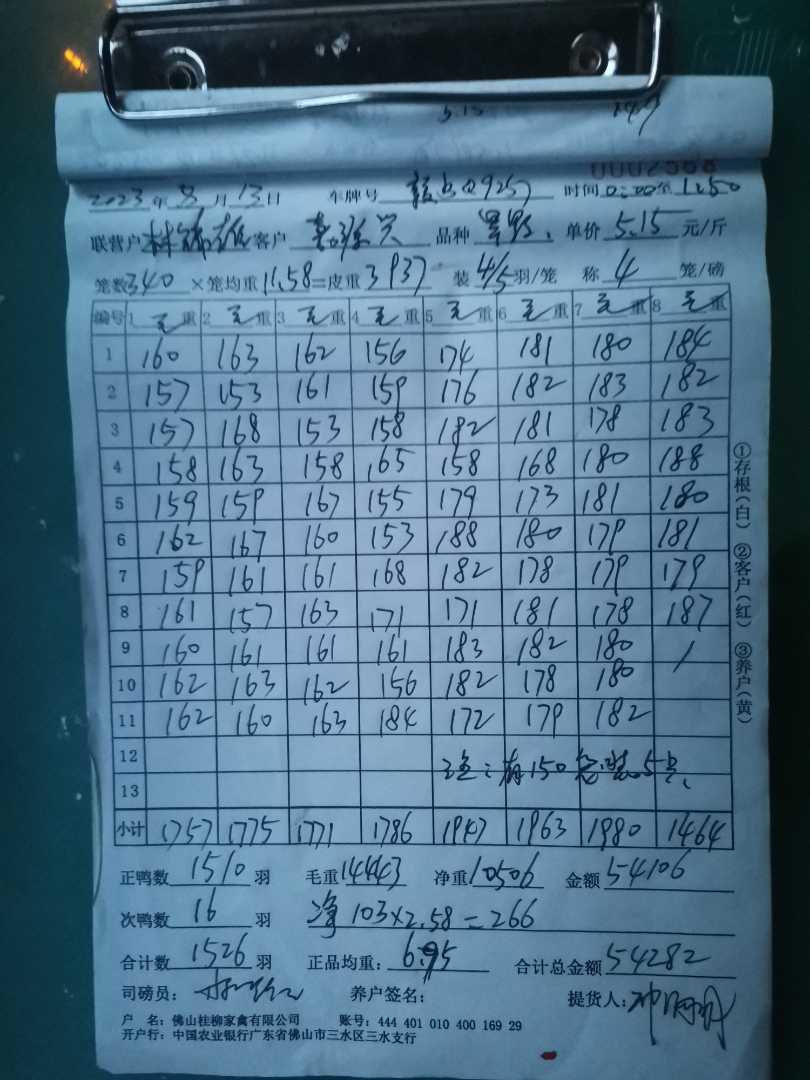 5.15
0002568
2023年8月13日 车牌号 Q9257 时间0:00至1:50
联营户 林锦雄 客户 品种 单价 5.15 元/斤
笼数340 ×笼均重11.58=皮重3937 装4/5羽/笼 称4笼/磅
编号 1毛重 2毛重 3毛重 4毛重 5毛重 6毛重 7毛重 8毛重
1 160 163 162 156 174 181 180 184
2 157 153 161 159 176 182 183 182
3 157 168 153 158 182 181 178 183
4 158 163 158 165 158 168 180 188
5 159 159 167 155 179 173 181 180
6 162 167 160 153 188 180 179 181
7 159 161 161 168 182 178 179 179
8 161 157 163 171 171 181 178 187
9 160 161 161 161 183 182 180 /
10 162 163 162 156 182 178 180
11 162 160 163 184 172 179 182
12 注:有150笼装5只
13
小计 1757 1775 1771 1786 1947 1963 1980 1464
正鸭数1510羽 毛重14443 净重10506 金额54106
次鸭数16羽 净103×2.58=266
合计数1526羽 正品均重:6.95 合计总金额54282
司磅员: 养户签名: 提货人:
户 名:佛山桂柳家禽有限公司 账号:444 401 010 400 169 29
开户行:中国农业银行广东省佛山市三水区三水支行
①存根(白) ②客户(红) ③养户(黄)